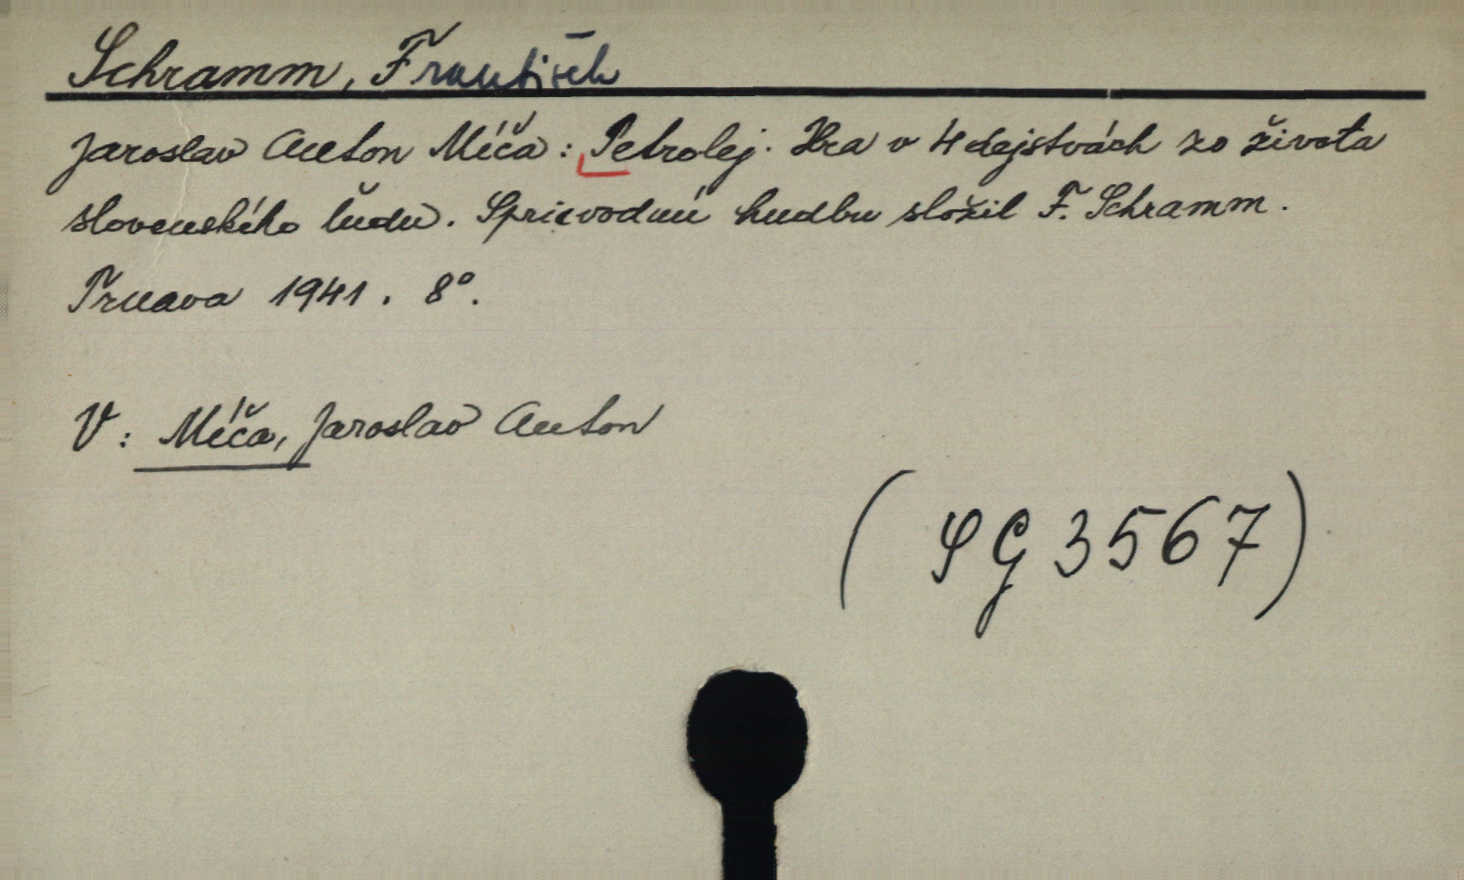 Schramm, František
Jaroslav Anton Míča: Petrolej. Hra v 4 dejstvách zo života
slovenského ľudu. Sprievodnú hudbu složil F. Schramm.
Trnava 1941. 8°.
V: Míča, Jaroslav Anton
(SG 3567)